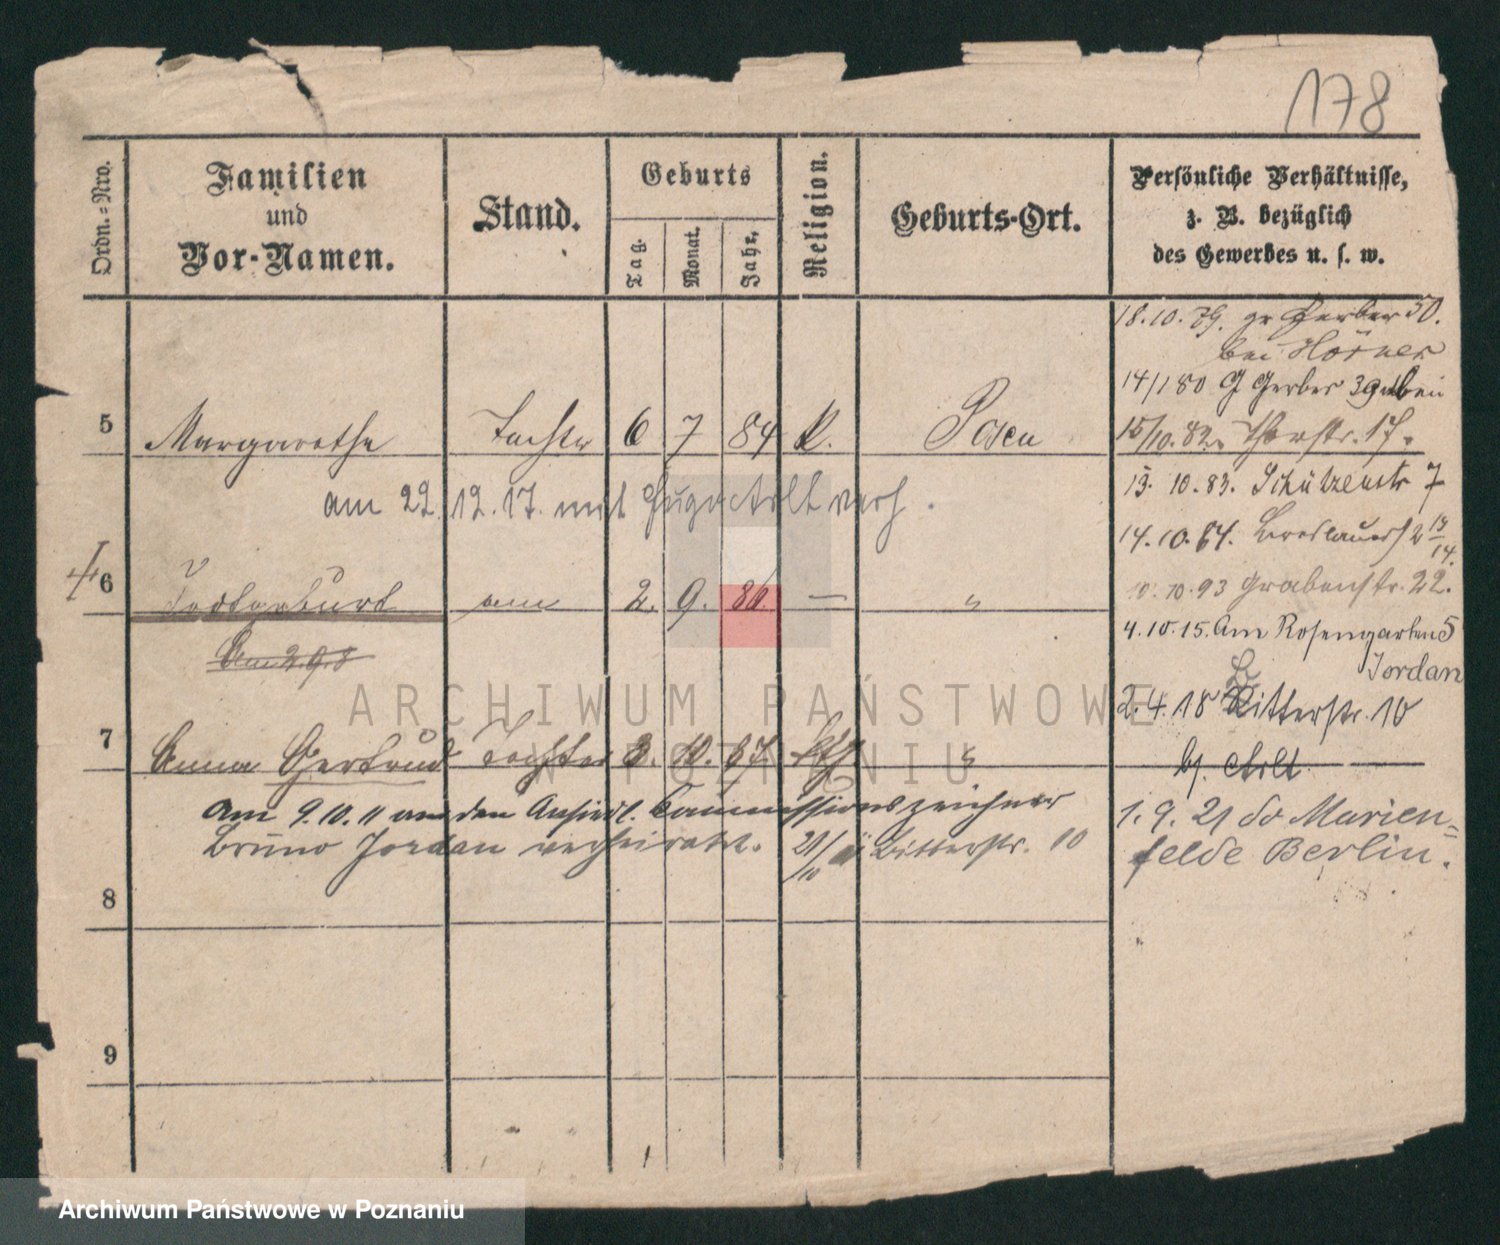 178
Ordn.=Nro.
Familien
und
Vor-Namen.
Stand.
Geburts
Tag.
Monat.
Jahr.
Religion.
Geburts-Ort.
Persönliche Verhältnisse,
z. B. bezüglich
des Gewerbes u. s. w.
18.10.79. gr Gerber 50.
bei Hörner
14/1 80 G Gerber 39
5 Margarethe Tochter 6 7 84 k. Posen
15/10. 82. Thorstr. 17.
am 22.12.17. mit Hugo Arlt verh.
13. 10. 83. Schützenstr 7
14. 10. 84. Breslauerst 2 13/14.
6 Todtgeburt 2. 9. 86. — "
10. 93 Grabenstr. 22.
4. 10. 15. Am Rosengarten 5
Jordan
2. 4. 18 Ritterstr. 10
7 Anna Gertrud Tochter 3. 10. 87. "
bj. Arlt
am 9. 10. 11 an den Ansiedl. Commissionszeichner
Bruno Jordan verheiratet. 21/10 Ritterstr. 10
1. 9. 21 do Marien=
felde Berlin.
8
9
ARCHIWUM PAŃSTWOWE
W POZNANIU
Archiwum Państwowe w Poznaniu